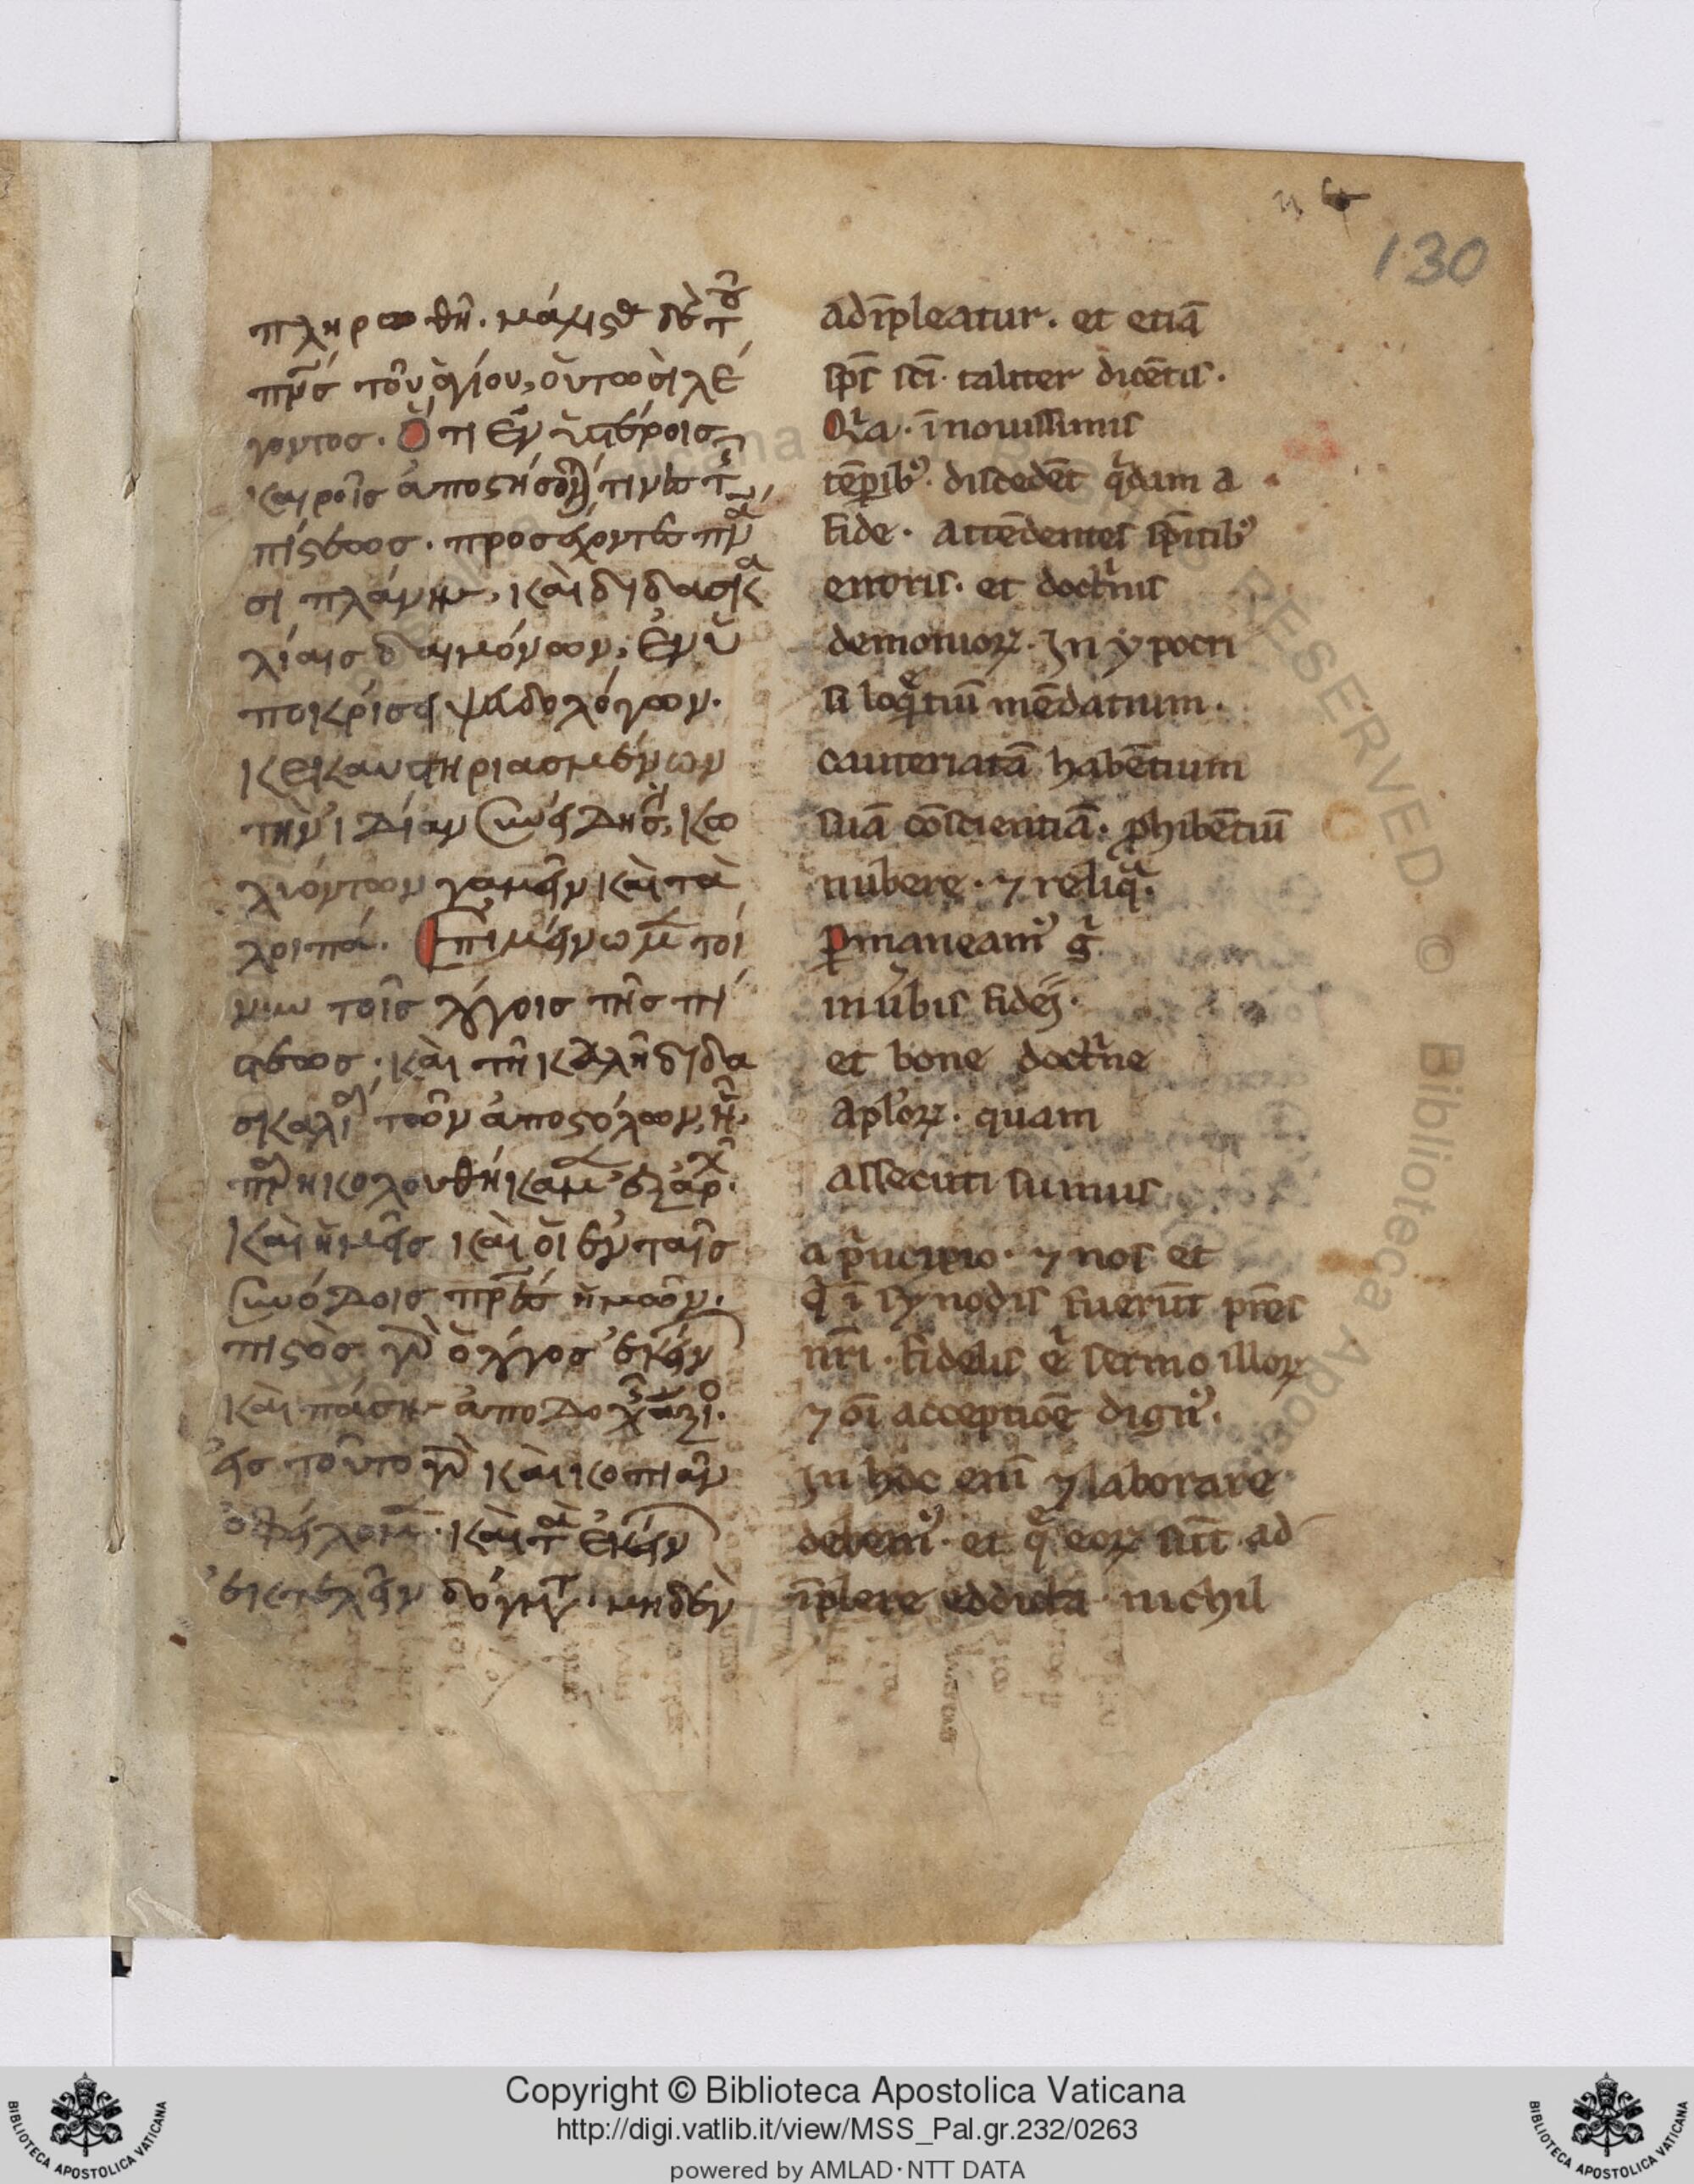 130
πληρωθῆ. μάλιστα δὲ τοῦ
πν̅ς τοῦ ἁγίου, οὑτωσὶ λέ
γοντος. Ὅτι ἐν ὑστέροις
καιροῖς ἀποστήσονταί τινες τῆς
πίστεως. προσέχοντες πν̅α
σι πλάνης, καὶ διδασκα
λίαις δαιμόνων, ἐν ὑ
ποκρίσει ψευδολόγων.
κεκαυτηριασμένων
τὴν ἰδίαν συνείδησιν, κω
λυόντων γαμεῖν καὶ τὰ
λοιπά. Ἐπιμείνωμεν τοί
νυν τοῖς λόγοις τῆς πί
στεως. καὶ τῆ καλῆ διδα
σκαλία τῶν ἀποστόλων, ἧ
παρηκολουθήκαμεν ἐξ ἀρχῆς.
καὶ ἡμεῖς καὶ οἱ ἐν ταῖς
συνόδοις πρ̅ες ἡμῶν.
πιστὸς γὰρ ὁ λόγος ἐκείνων
καὶ πάσης ἀποδοχῆς ἄξιος.
εἰς τοῦτο γὰρ καὶ κοπιᾶν
ὀφείλομεν. καὶ τὰ ἐκείνων
ἐκτελεῖν δόγματα. μηδὲν
adīpleatur. et etiā
sp̅s sc̅i. taliter dicētis.
Qr̄a. ī nouissimis
tēporib⁹. discedēt qͥdam a
fide. attēdentes sp̅itib⁹
erroris. et doctͥnis
demoniorꝝ. In ypocri
si loquētiū mēdatium.
cauteriatā habētium
suā cōscientiā. ꝓhibētiū
nubere. ⁊ reliqᵃ.
ꝑmaneam⁹ gͥ
in ūbis fidei.
et bone doctͥne
apl̅orꝝ. quam
assecuti sumus
a pͥncipio. ⁊ nos et
qͥ ī synodis fuerūt pr̅es
nr̅i. fidelis ē sermo illorꝝ
⁊ oī acceptiōe dign⁹.
In hoc enī ⁊ laborare
debem⁹. et qᵃ eorꝝ sūt ad
īplere eddicta. nichil
Copyright © Biblioteca Apostolica Vaticana
http://digi.vatlib.it/view/MSS_Pal.gr.232/0263
powered by AMLAD·NTT DATA
BIBLIOTECA APOSTOLICA VATICANA
BIBLIOTECA APOSTOLICA VATICANA